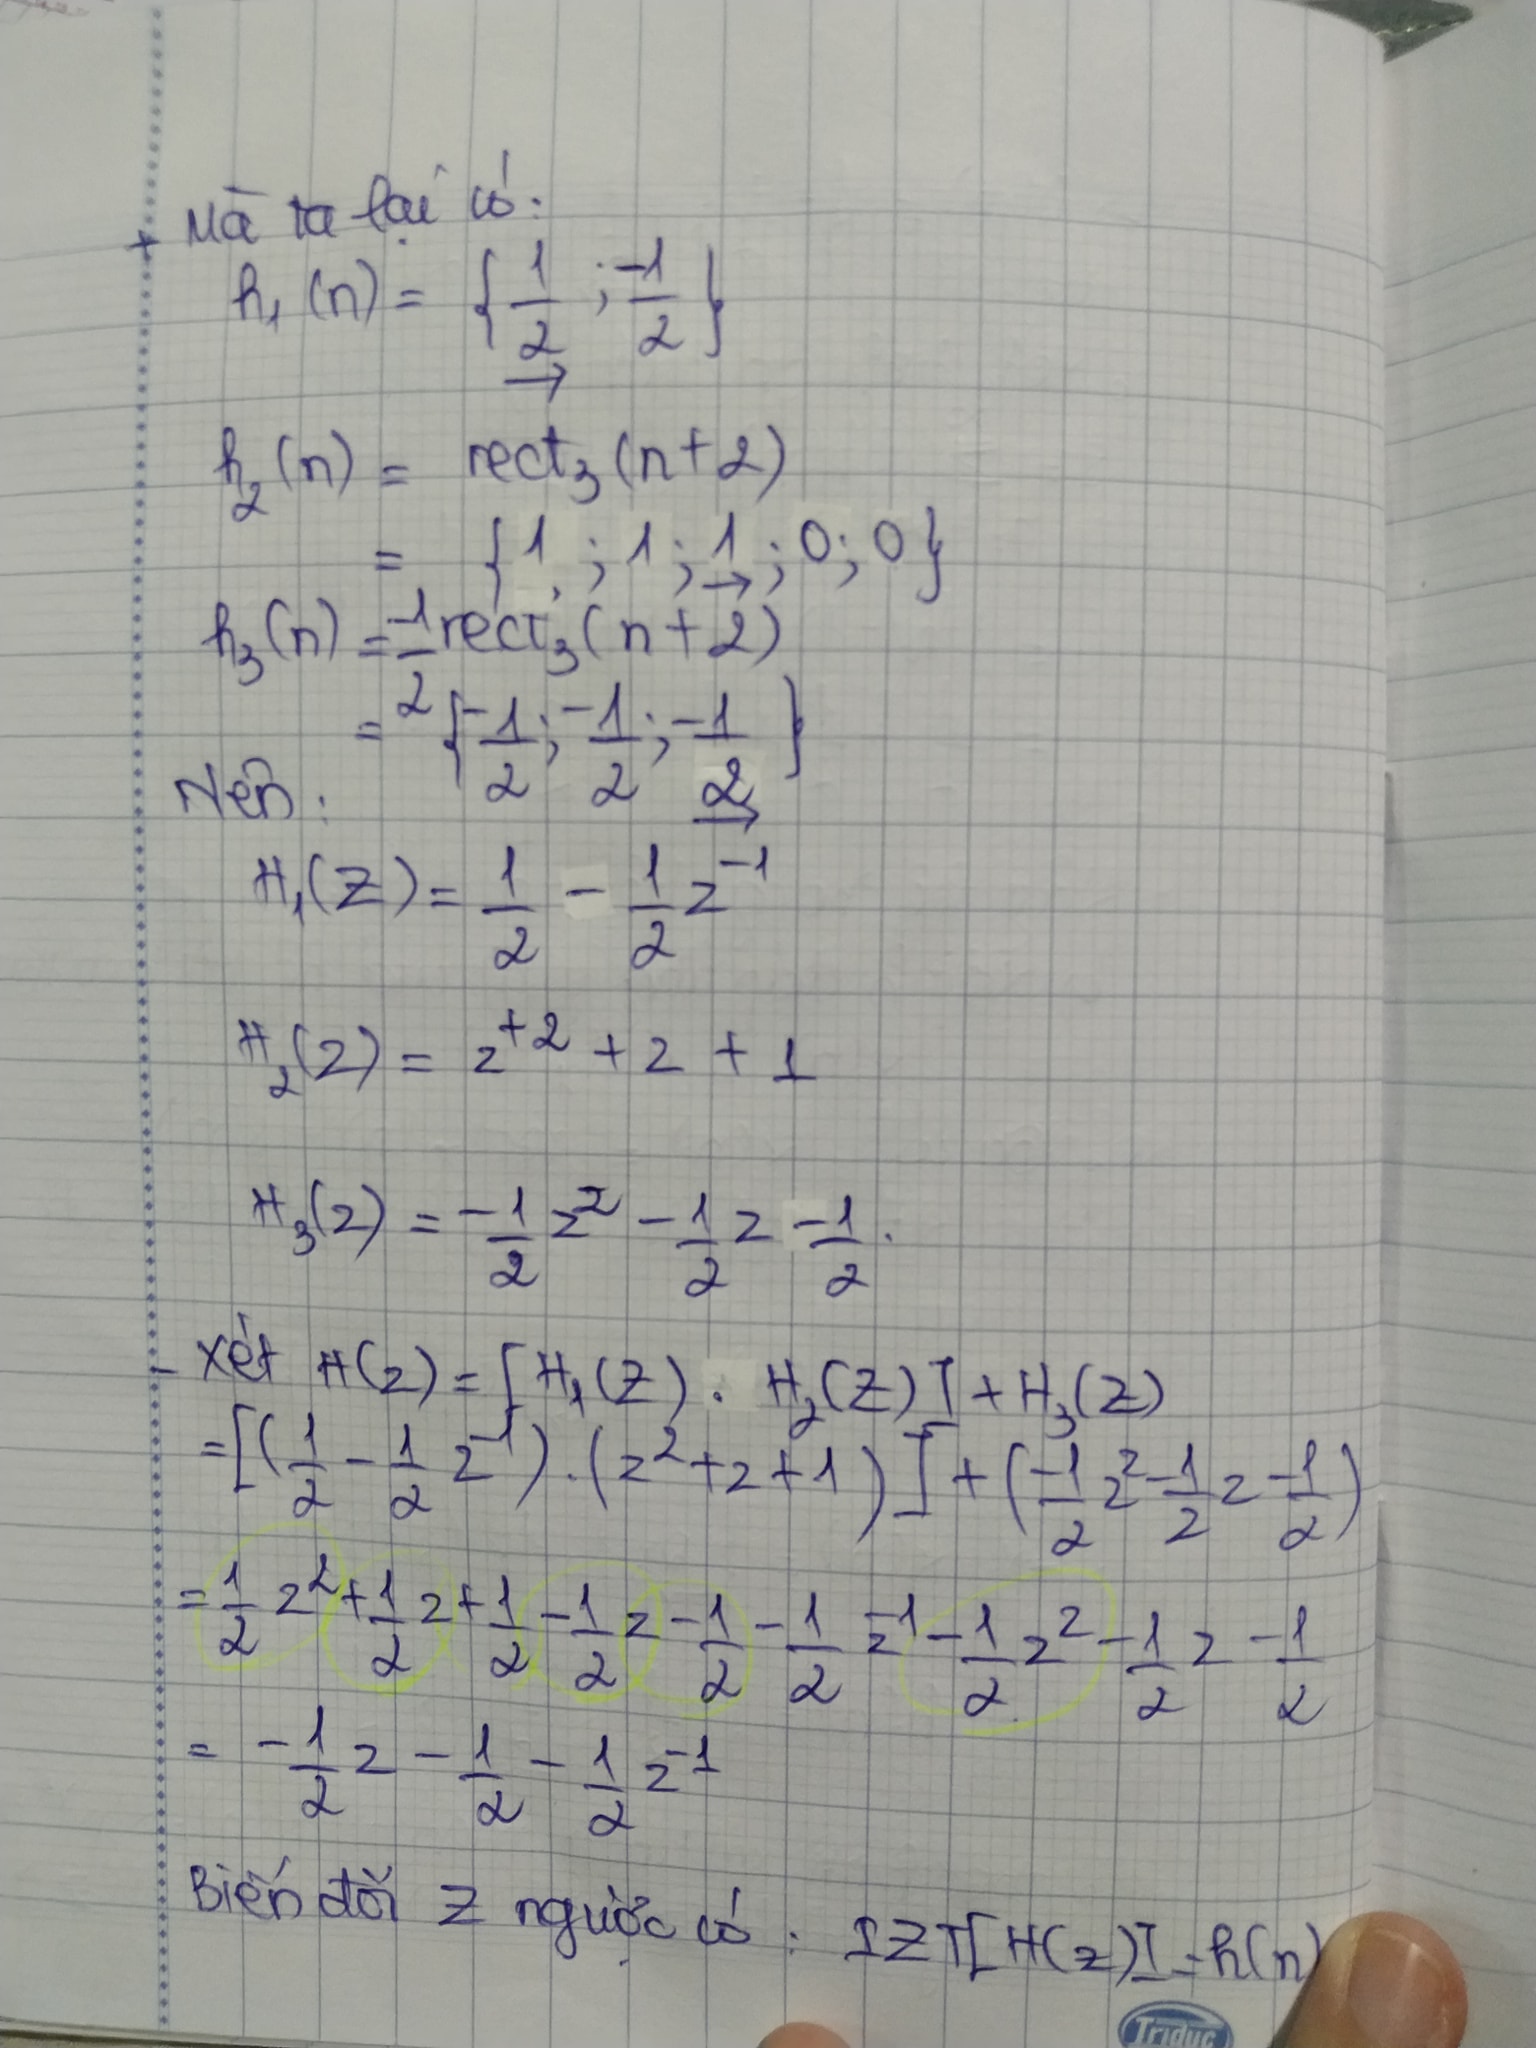 + Mà ta lại có:
h₁(n) = {1/2 ; -1/2}
→
h₂(n) = rect₃(n+2)
= {1 ; 1 ; 1 ; 0 ; 0}
→
h₃(n) = -1/2 rect₃(n+2)
= {-1/2 ; -1/2 ; -1/2}
→
Nên :
H₁(Z) = 1/2 - 1/2 z⁻¹
H₂(z) = z⁺² + z + 1
H₃(z) = -1/2 z² - 1/2 z - 1/2 .
- Xét H(z) = [H₁(Z) . H₂(Z)] + H₃(Z)
= [(1/2 - 1/2 z⁻¹) . (z² + z + 1)] + (-1/2 z² - 1/2 z - 1/2)
= 1/2 z² + 1/2 z + 1/2 - 1/2 z - 1/2 - 1/2 z⁻¹ - 1/2 z² - 1/2 z - 1/2
= -1/2 z - 1/2 - 1/2 z⁻¹
Biến đổi Z ngược có : IZT[H(z)] = h(n)
Triduc